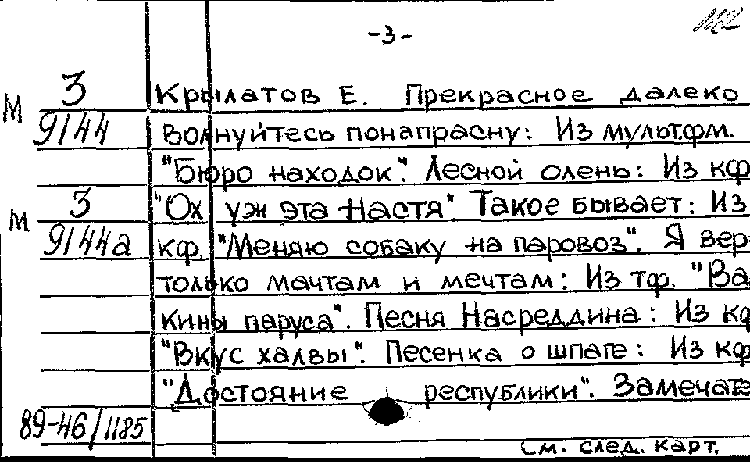 -3-
М З 9144
Крылатов Е. Прекрасное далеко
волнуйтесь понапрасну: Из мультфм.
"Бюро находок". Лесной олень: Из кф
М З 9144а
"Ох уж эта Настя". Такое бывает: Из
кф. "Меняю собаку на паровоз". Я вер
только мачтам и мечтам: Из тф. "Ва
кины паруса". Песня Насреддина: Из кф
"Вкус халвы". Песенка о шпаге: Из кф
"Достояние республики". Замечате
89-46/1185
См. след. карт.